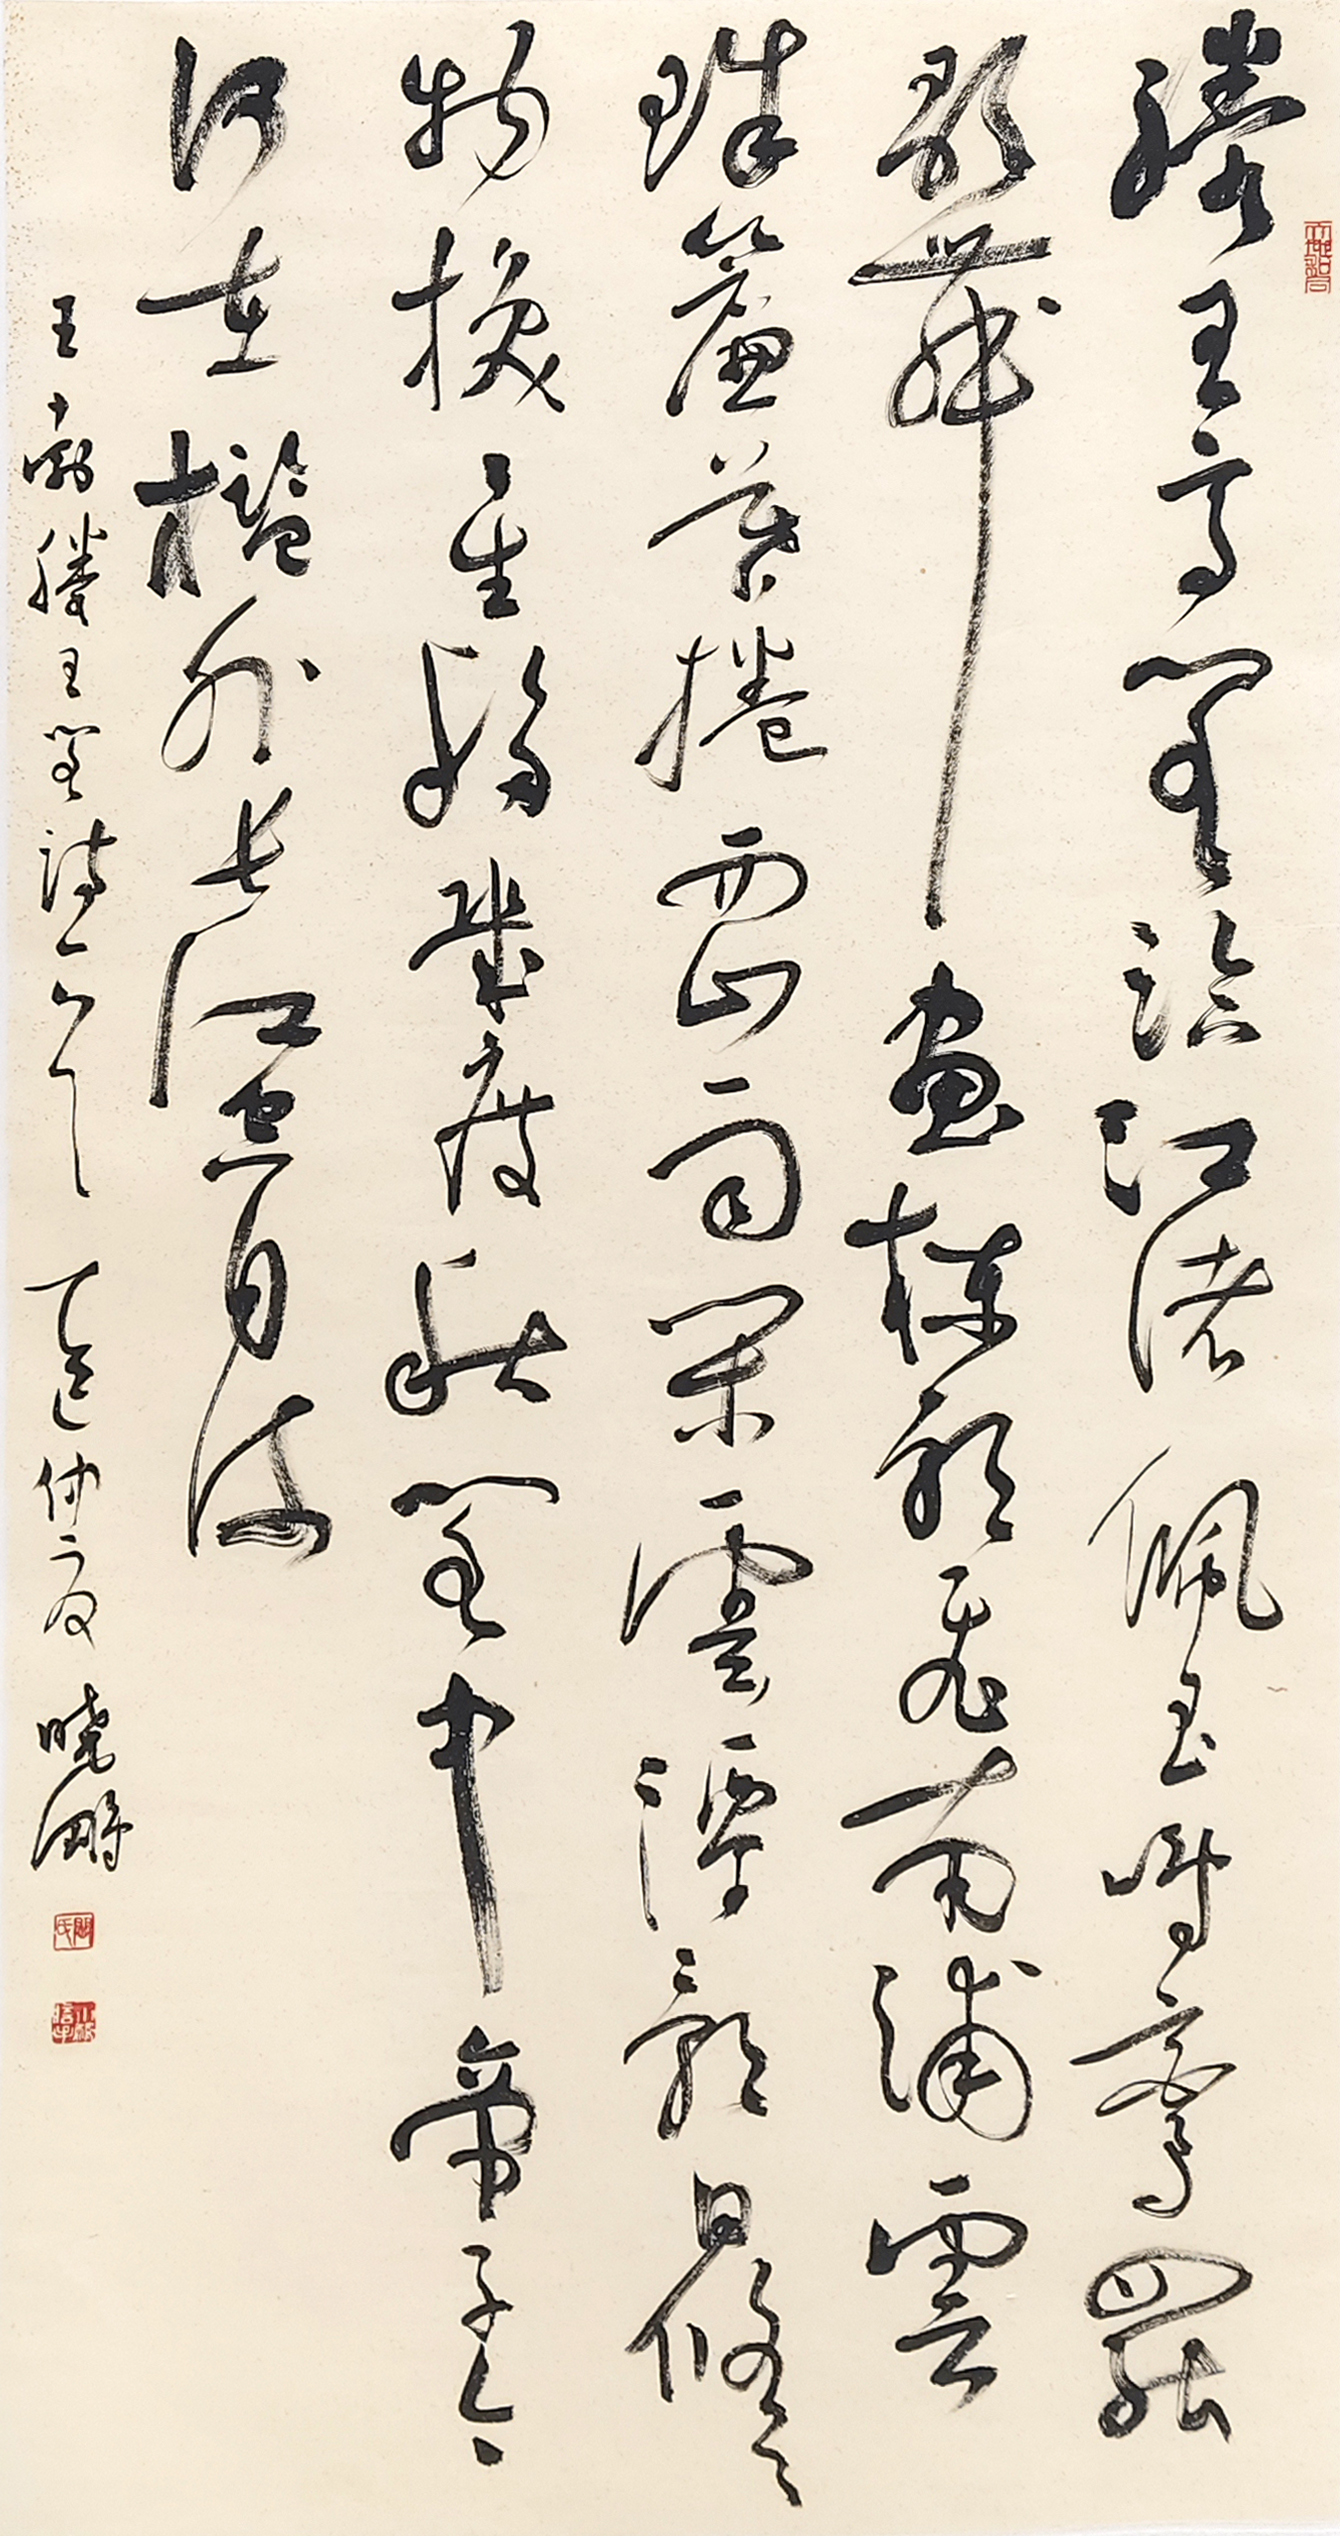 滕王高閣臨江渚佩玉鳴鸞罷
歌舞畫棟朝飛南浦雲
珠簾暮捲西山雨閑雲潭影日悠々
物換星移幾度秋閣中帝子今
何在檻外長江空自流
王勃滕王閣詩一首 仲夏 曉鵬